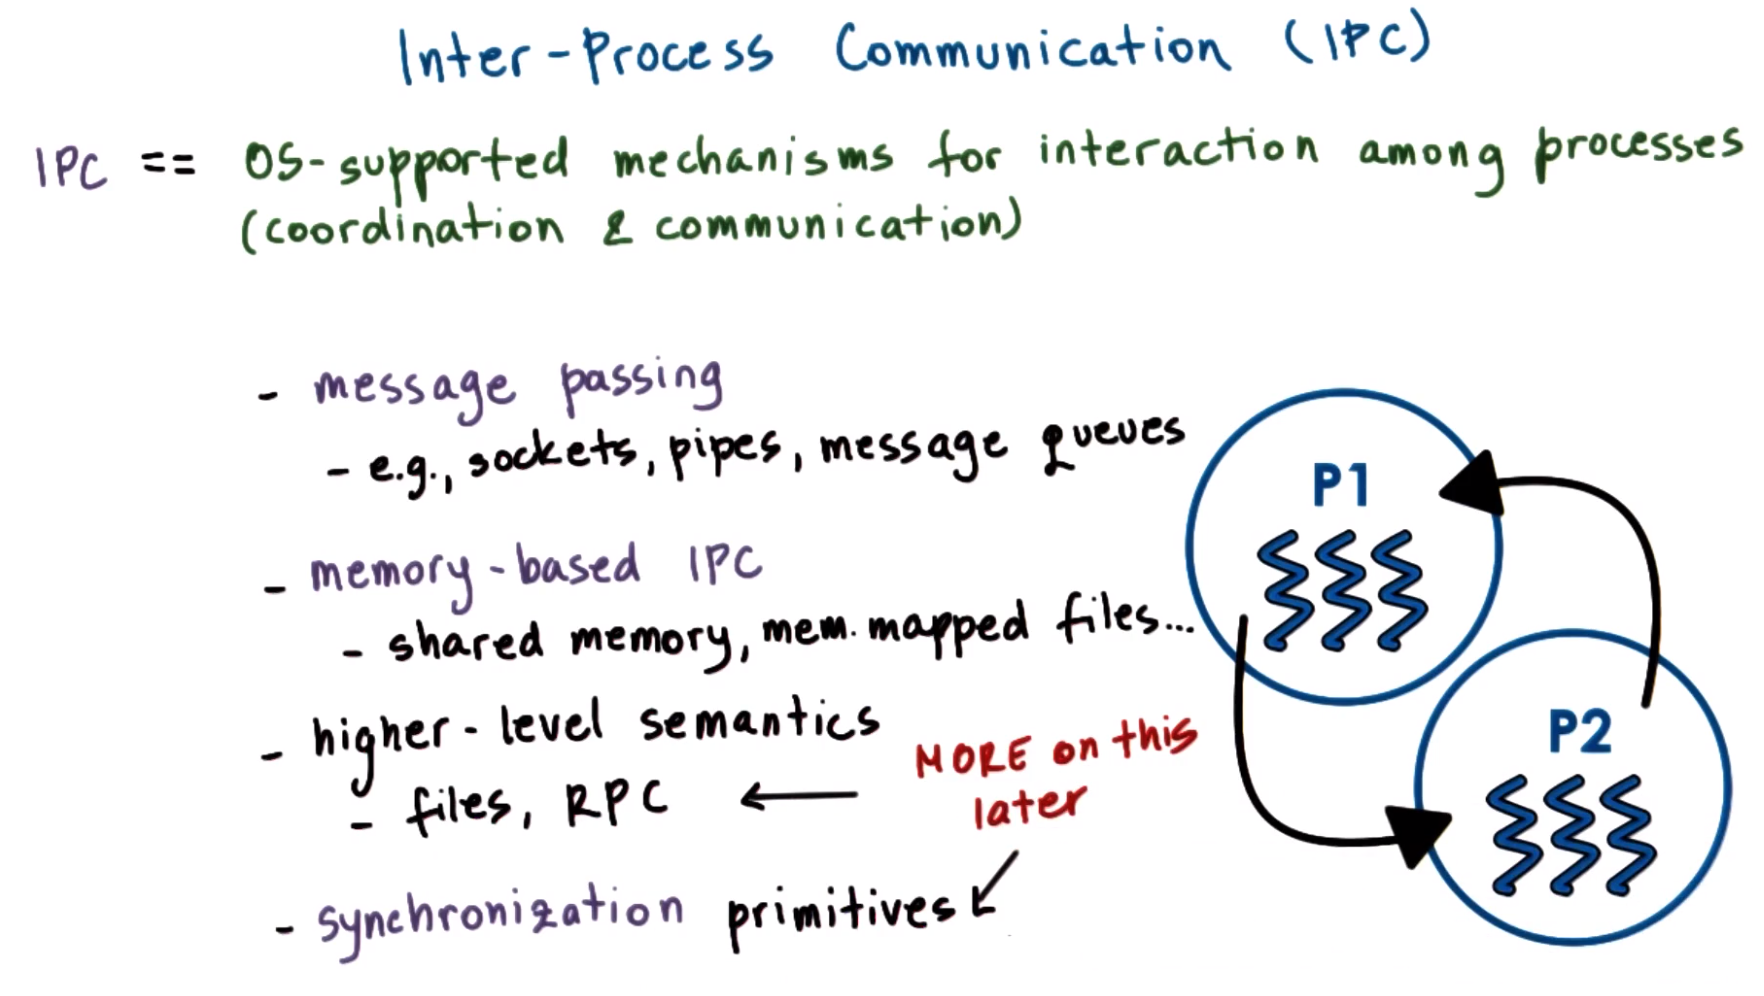 Inter-Process Communication (IPC)
IPC == OS-supported mechanisms for interaction among processes
(coordination & communication)
- message passing
- e.g., sockets, pipes, message queues
- memory-based IPC
- shared memory, mem. mapped files...
- higher-level semantics
- files, RPC ←
MORE on this
later
- synchronization primitives
P1
P2